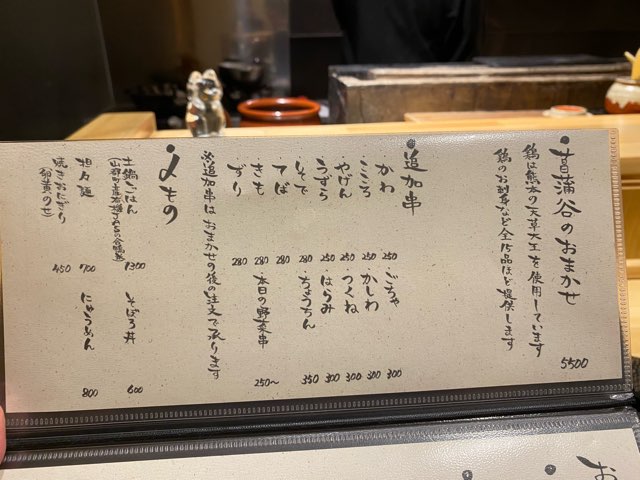 菖蒲谷のおまかせ 5500
鶏は熊本の天草大王を使用しています
鶏のお刺身など全15品ほど提供します
追加串
かわ 250
こころ 250
やげん 250
うずら 250
そで 280
てば 280
きも 280
ずり 280
かしわ 300
つくね 300
はらみ 300
ちょうちん 350
本日の野菜串 250~
※追加串はおまかせの後の注文で承ります
〆もの
土鍋ごはん 1300
そぼろ丼 600
担々麺 700
にゅうめん 800
焼きおにぎり 450
(卵黄のせ)
お